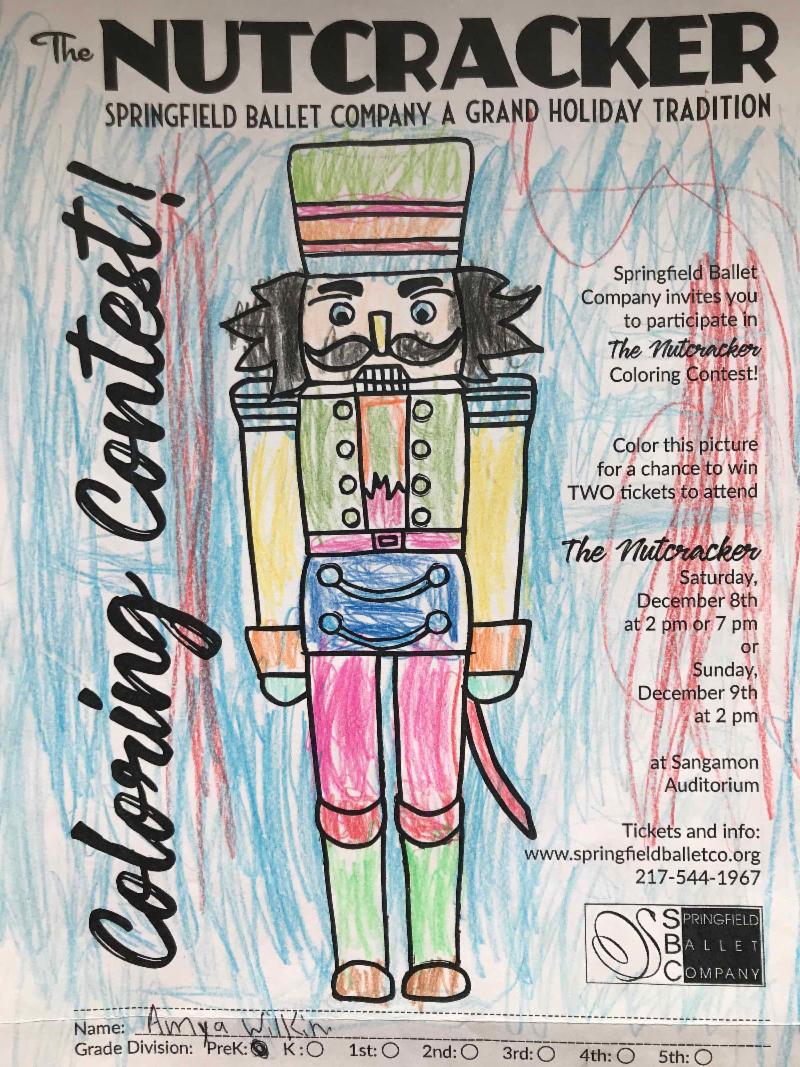 The NUTCRACKER
SPRINGFIELD BALLET COMPANY A GRAND HOLIDAY TRADITION
Coloring Contest!
Springfield Ballet
Company invites you
to participate in
The Nutcracker
Coloring Contest!
Color this picture
for a chance to win
TWO tickets to attend
The Nutcracker
Saturday,
December 8th
at 2 pm or 7 pm
or
Sunday,
December 9th
at 2 pm
at Sangamon
Auditorium
Tickets and info:
www.springfieldballetco.org
217-544-1967
SPRINGFIELD
BALLET
COMPANY
Name: Amya Wilkin
Grade Division: PreK: K: 1st: 2nd: 3rd: 4th: 5th: